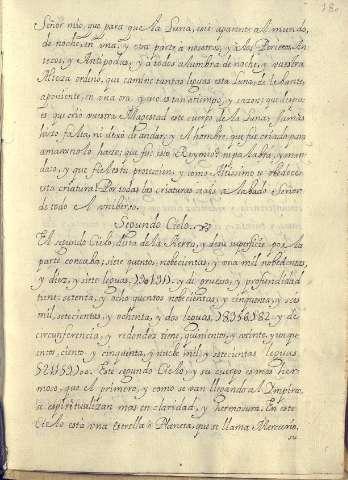 180
Señor mio, que para que la Luna, este aparente al mundo,
de noche, en una, y otra parte, a nosotros, y a los
y Antipodas, y a todos alumbra de noche, y vuestra
Alteza ordenó, que camine tantas leguas esta Luna, de lebante,
aponiente, en una ora, que es tan en tiempo, y razon: que despu-
es que crió vuestra Magestad este cuerpo de la Luna: jamas
hizo falta, ni dexó de andar, y el hombre, que fue criado para
amaros no lo hace:
esta criatura! Por todas las criaturas seais alabado Señor
de todo
Segundo Cielo.
El segundo Cielo dista de la tierra, y de su superficie por la
parte concaba, siete quentos, nobecientas, y una mil nobecientas,
y diez, y siete leguas, y de grueso, y profundidad
tiene, setenta, y ocho quentos nobecientas, y cinquenta, y seis
mil, setecientas, y ochenta, y dos leguas, y de
circunferencia, y redondez tiene, quinientos, y veinte, y un quen-
tos, ciento, y cinquenta, y nueve mil, y setecientas leguas.
Este segundo Cielo, y su cuerpo es mas her-
moso, que el primero, y como se van llegando al Impireo,
se espiritualizan mas en claridad, y hermosura. En este
Cielo está una estrella o Planeta, que se llama Mercurio.
su